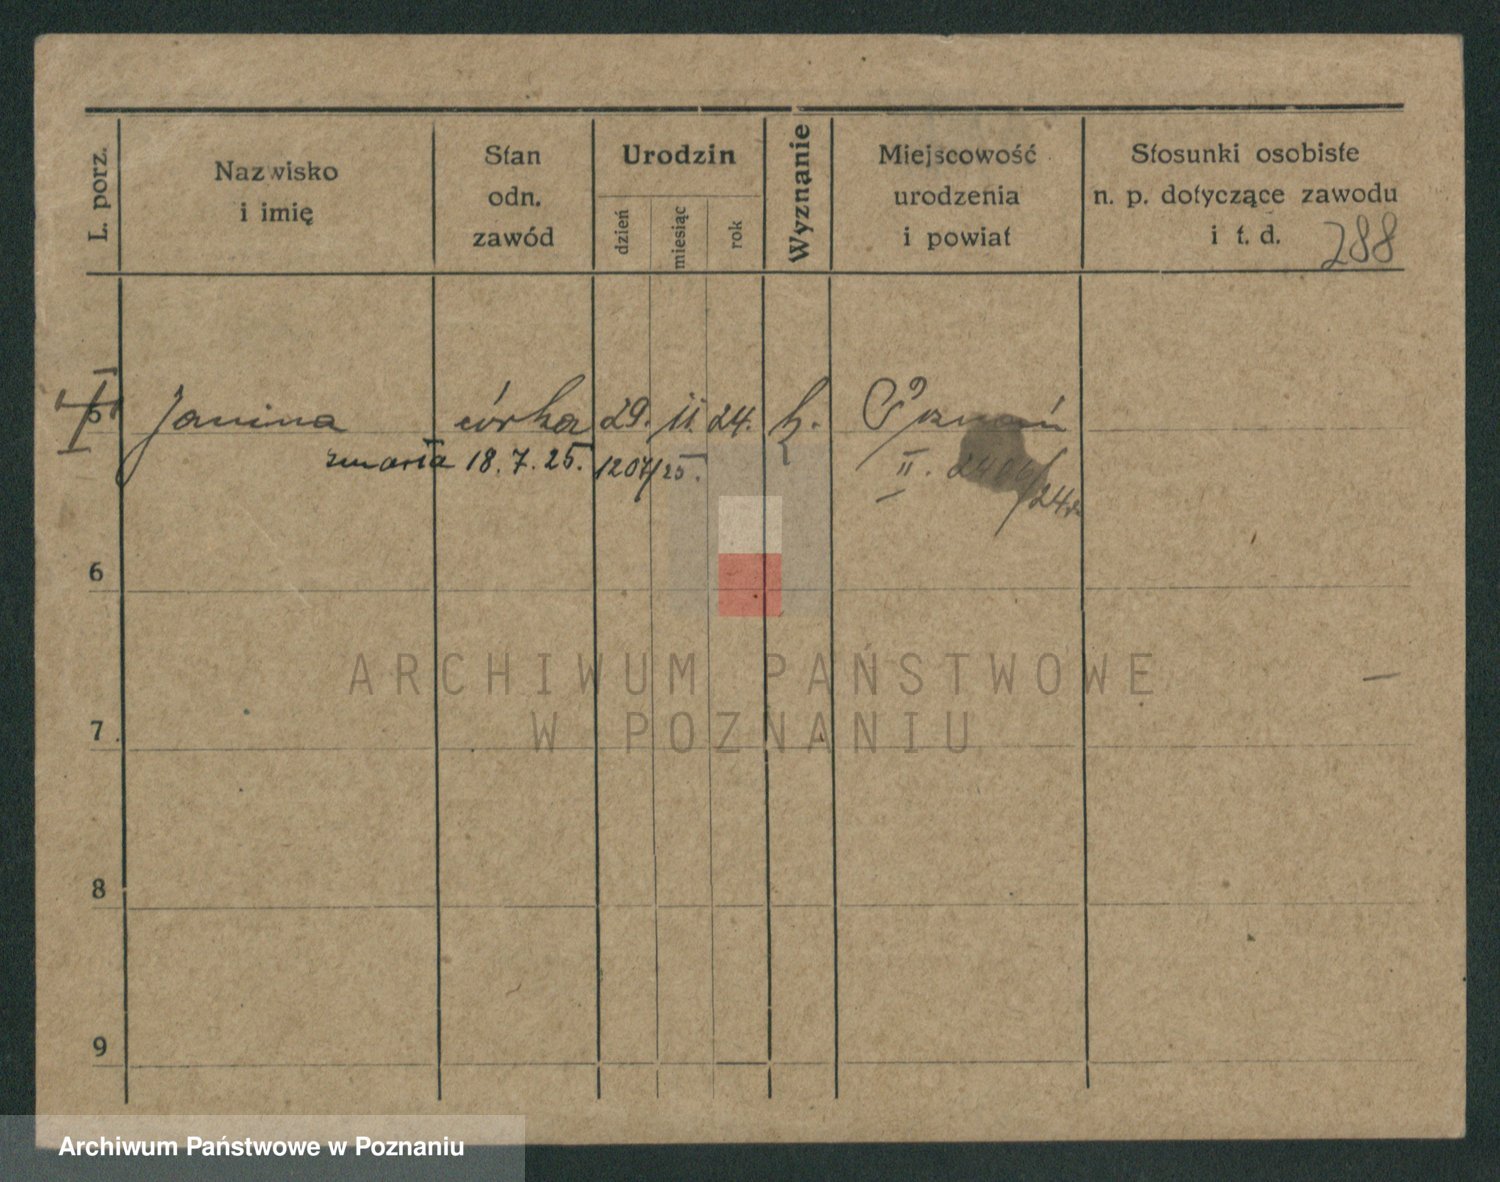 L. porz.
Nazwisko
i imię
Stan
odn.
zawód
Urodzin
dzień
miesiąc
rok
Wyznanie
Miejscowość
urodzenia
i powiat
Stosunki osobiste
n. p. dotyczące zawodu
i t. d.
288
5 Janina córka 29. 11. 24. k. Poznań
zmarła 18. 7. 25. 1207/25. II.
/24
6
ARCHIWUM PAŃSTWOWE
W POZNANIU
7
8
9
Archiwum Państwowe w Poznaniu